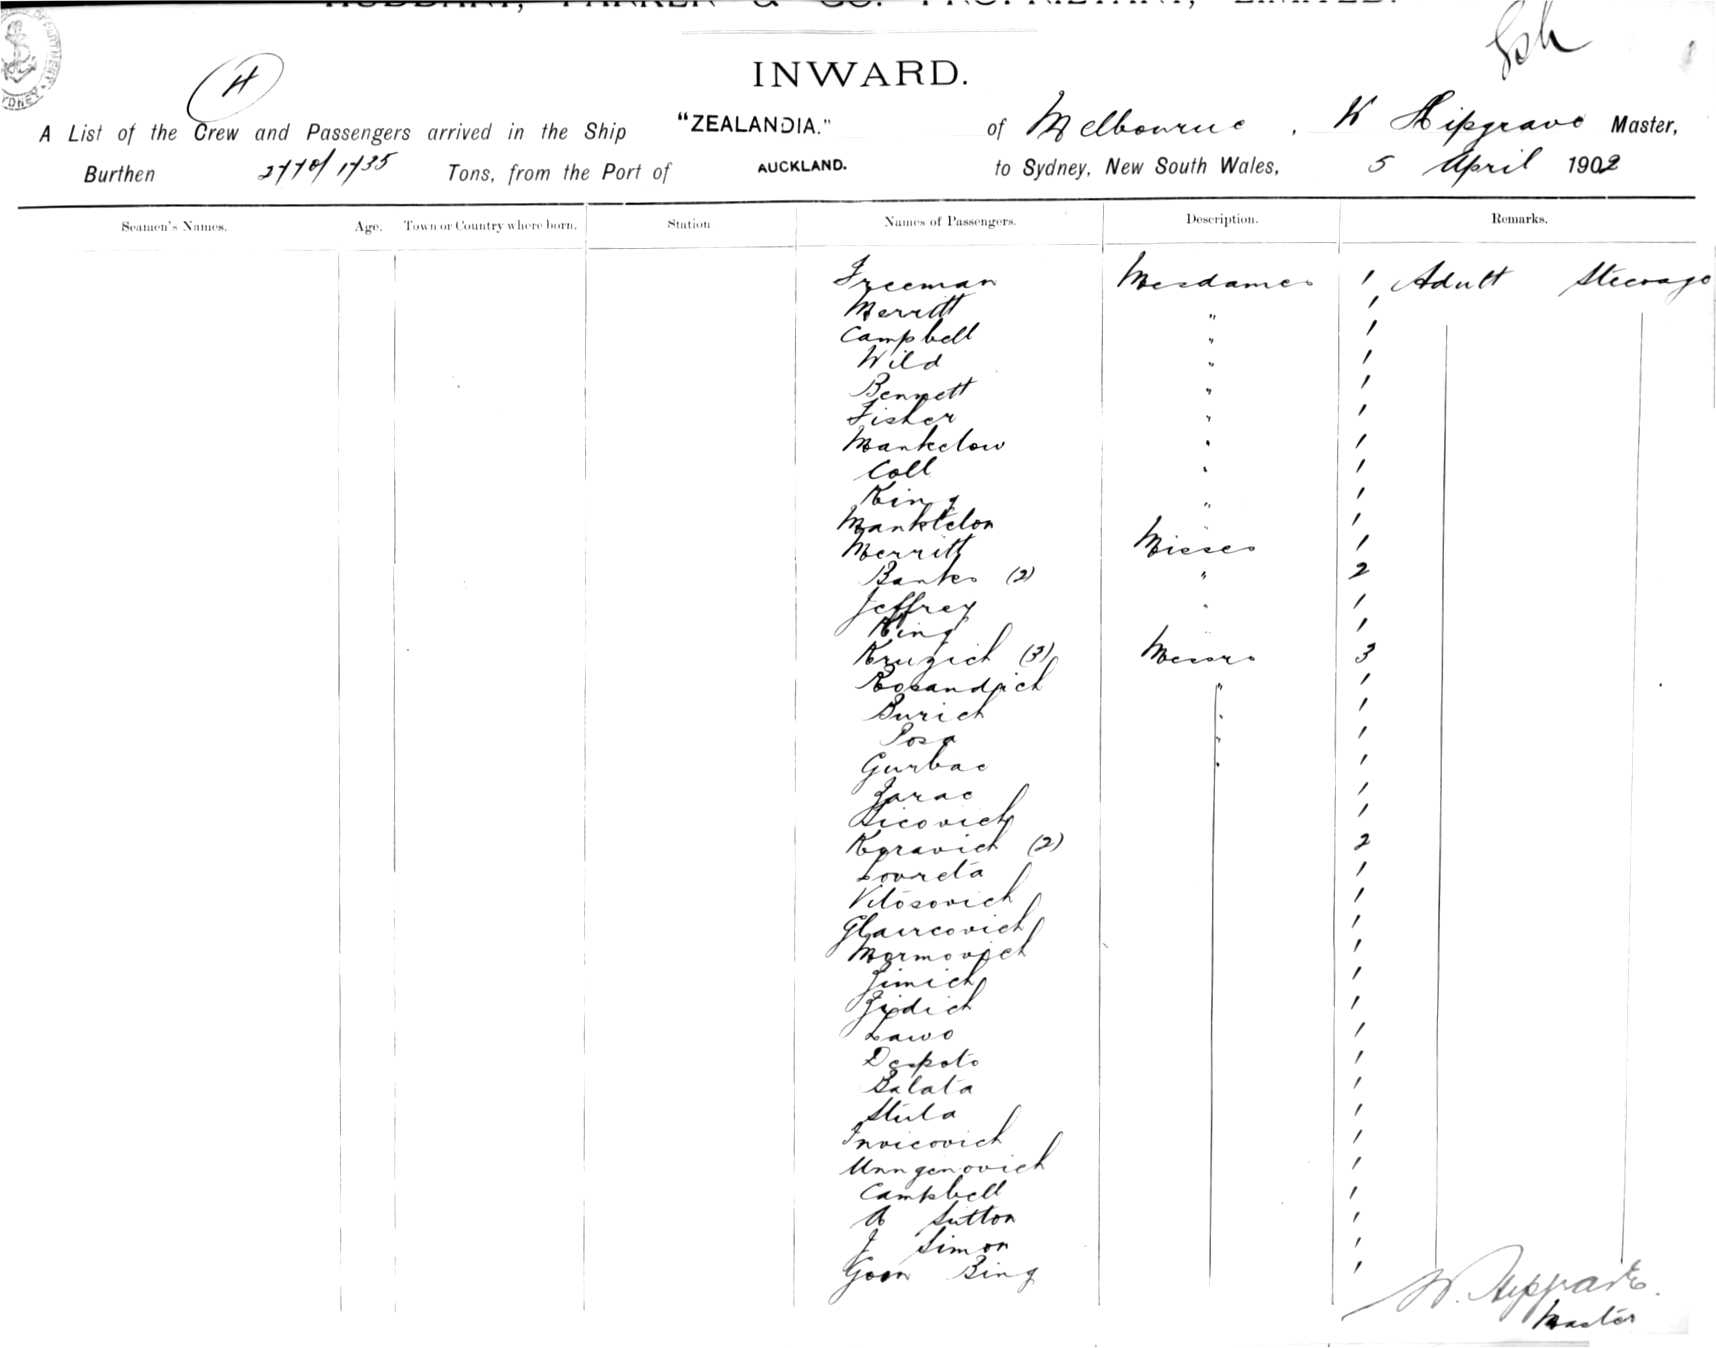 HUDDART, PARKER & CO. PROPRIETARY, LIMITED.
INWARD.
H
A List of the Crew and Passengers arrived in the Ship "ZEALANDIA." of Melbourne, W Hipgrave Master,
Burthen 2770/1735 Tons, from the Port of AUCKLAND. to Sydney, New South Wales, 5 April 1902
Seamen's Names. Age. Town or Country where born. Station Names of Passengers. Description. Remarks.
Freeman Mesdames 1 Adult Steerage
Merritt " 1
Campbell " 1
Wild " 1
Bennett " 1
Fisher " 1
Mankelow " 1
Coll " 1
King " 1
Manktelon " 1
Merritt Misses 1
Banks (2) " 2
Jeffrey " 1
King " 1
Kruzich (3) Messrs 3
Rosandich " 1
Burich " 1
Posa " 1
Gurbac " 1
Jarac 1
Sicovich 1
Kgravich (2) 2
Lovreta 1
Vitosovich 1
Glaircovich 1
Marmovich 1
Jimich 1
Jipdich 1
Lawo 1
Despoto 1
Balata 1
Stula 1
Invicovich 1
Unngenovich 1
Campbell 1
A Sutton 1
J Simon 1
Goon Bing 1
W. Hipgrave.
Master